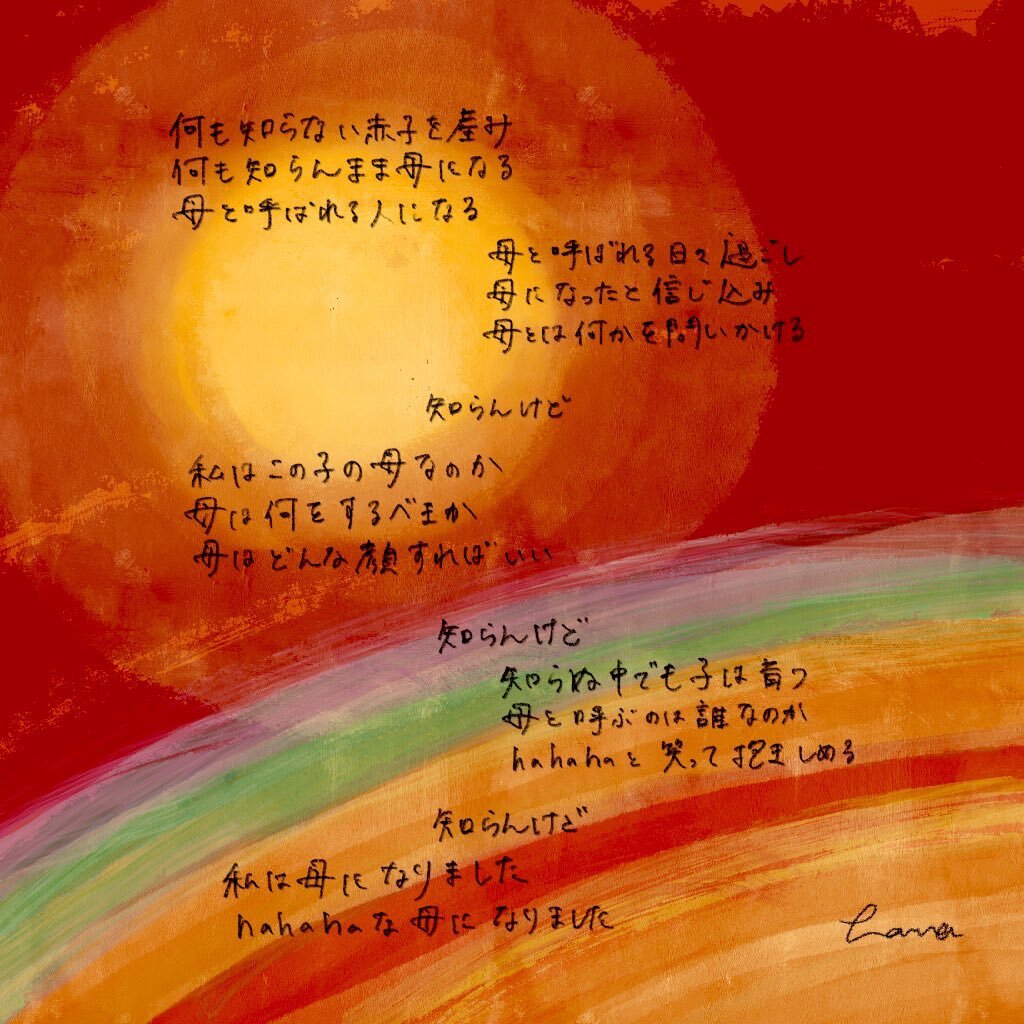 何も知らない赤子を産み
何も知らんまま母になる
母と呼ばれる人になる
母と呼ばれる日々過ごし
母になったと信じ込み
母とは何かを問いかける
知らんけど
私はこの子の母なのか
母は何をするべきか
母はどんな顔すればいい
知らんけど
知らぬ中でも子は育つ
母と呼ぶのは誰なのか
hahahaと笑って抱きしめる
知らんけど
私は母になりました
hahahaな母になりました